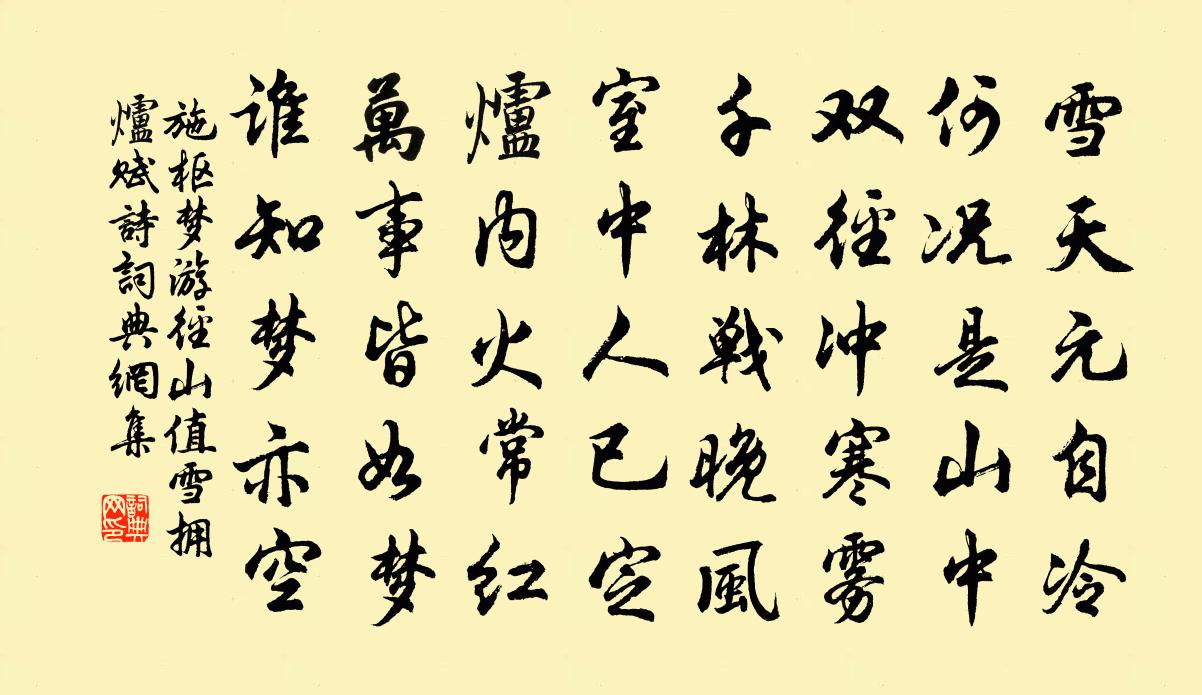 雪天元自冷
何况是山中
双径冲寒雾
千林戰晚風
室中人已定
爐内火常红
萬事皆如梦
谁知梦亦空
施枢梦游徑山值雪拥
爐赋詩詞典網集
詞典网印